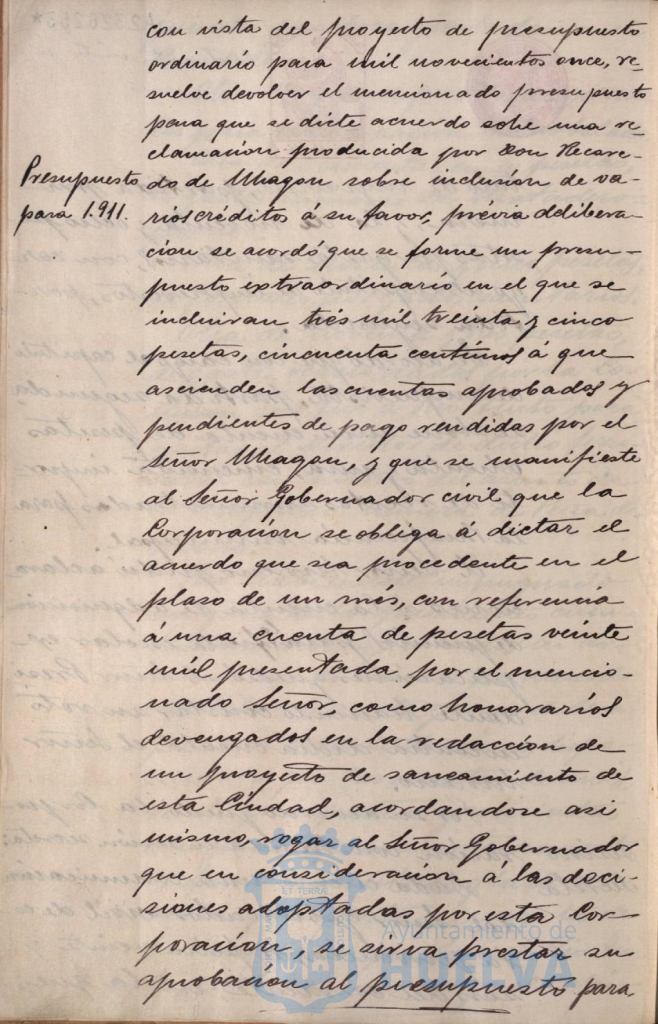 con vista del proyecto de presupuesto
ordinario para mil novecientos once, re-
suelve devolver el mencionado presupuesto
para que se dicte acuerdo sobe una re-
clamación producida por Don Recare-
Presupuesto
para 1.911.
do de Uhagon sobre inclusión de va-
rios créditos á su favor, prévia delibera-
cion se acordó que se forme un presu-
puesto extraordinario en el que se
incluiran trés mil treinta y cinco
pesetas, cincuenta centimos á que
ascienden las cuentas aprobadas y
pendientes de pago rendidas por el
Señor Uhagon, y que se manifieste
al Señor Gobernador civil que la
Corporación se obliga á dictar el
acuerdo que sea procedente en el
plaso de un més, con referencia
á una cuenta de pesetas veinte
mil presentada por el mencio-
nado Señor, como honorarios
devengados en la redacción de
un proyecto de saneamiento de
esta Ciudad, acordandose asi
mismo, rogar al Señor Gobernador
que en consideración á las deci-
siones adoptadas por esta Cor-
poración, se sirva prestar su
aprobación al presupuesto para
Ayuntamiento de
HUELVA